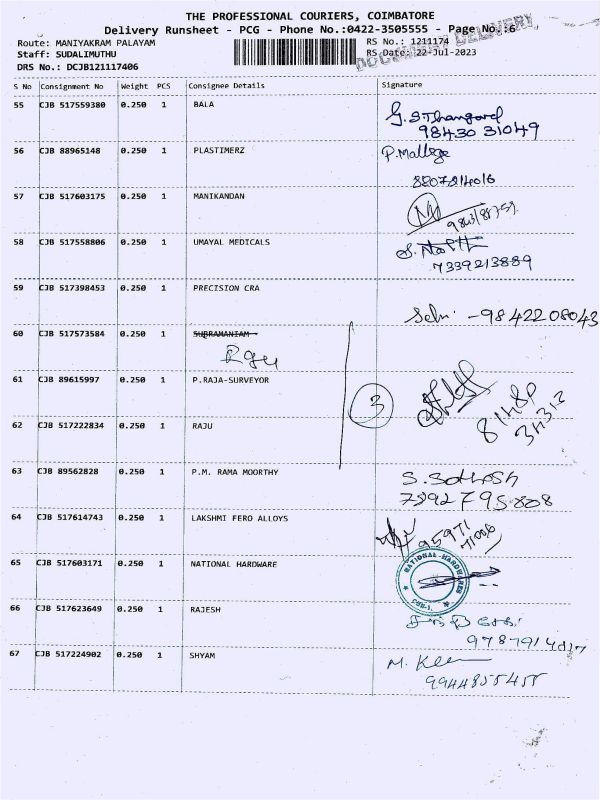 THE PROFESSIONAL COURIERS, COIMBATORE
Delivery Runsheet - PCG - Phone No.:0422-3505555 - Page No.:6
Route: MANIYAKRAM PALAYAM
RS No.: 1211174
Staff: SUDALIMUTHU
RS Date: 22-Jul-2023
DRS No.: DCJB121117406
DOCUMENT DELIVERY
S No Consignment No Weight PCS Consignee Details Signature
55 CJB 517559380 0.250 1 BALA
98430 31049
56 CJB 88965148 0.250 1 PLASTIMERZ
8807214016
57 CJB 517603175 0.250 1 MANIKANDAN
58 CJB 517558806 0.250 1 UMAYAL MEDICALS
7339213889
59 CJB 517398453 0.250 1 PRECISION CRA
- 98422 08043
60 CJB 517573584 0.250 1 SUBRAMANIAM
61 CJB 89615997 0.250 1 P.RAJA-SURVEYOR
3
62 CJB 517222834 0.250 1 RAJU
63 CJB 89562828 0.250 1 P.M. RAMA MOORTHY
64 CJB 517614743 0.250 1 LAKSHMI FERO ALLOYS
65 CJB 517603171 0.250 1 NATIONAL HARDWARE
NATIONAL HARDWARES
66 CJB 517623649 0.250 1 RAJESH
67 CJB 517224902 0.250 1 SHYAM
9944855455